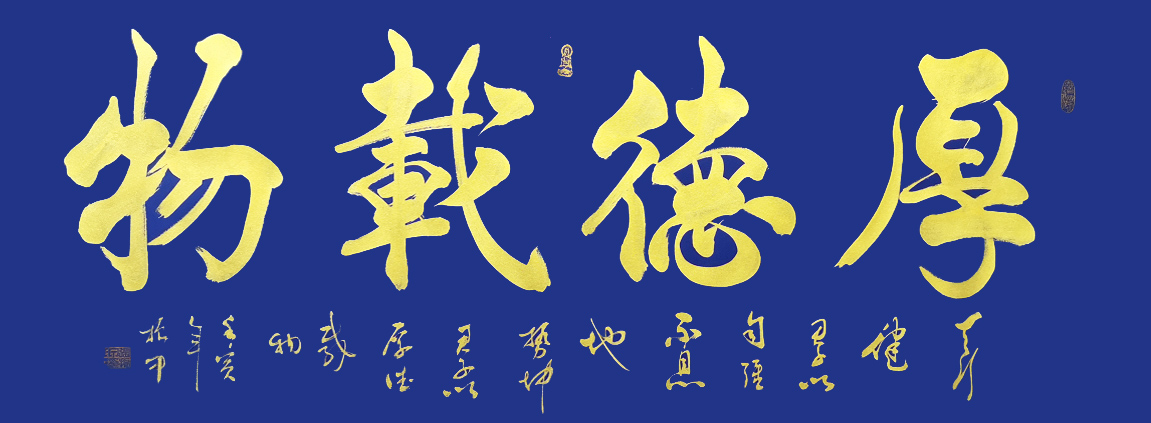 厚德載物
天行健君子以自強不息地勢坤君子以厚德載物
壬寅年